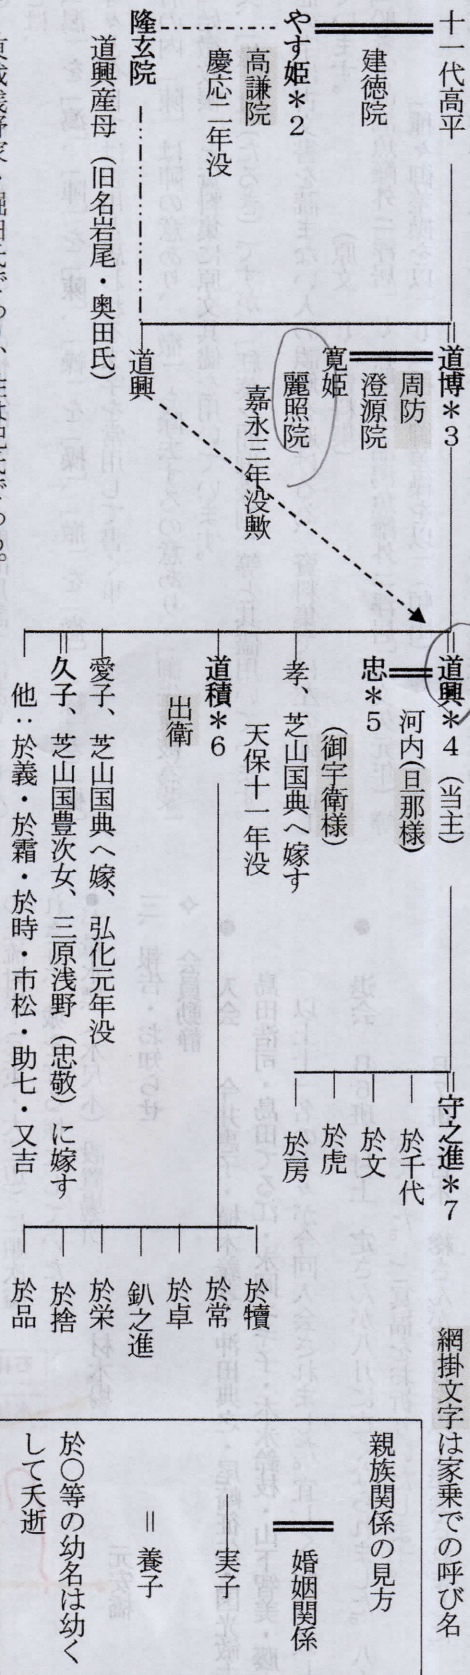 十一代高平
建徳院
やす姫＊2
高謙院
慶応二年没
隆玄院
道興産母（旧名岩尾・奥田氏）
道博＊3
周防
澄源院
寛姫
麗照院
嘉永三年没歟
道興
道興＊4（当主）
河内(旦那様)
忠＊5
(御宇衛様)
孝、芝山国典へ嫁す
天保十一年没
道積＊6
出衛
愛子、芝山国典へ嫁、弘化元年没
久子、芝山国豊次女、三原浅野（忠敬）に嫁す
他：於義・於霜・於時・市松・助七・又吉
守之進＊7
於千代
於文
於虎
於房
於犢
於常
於卓
釟之進
於栄
於捨
於品
網掛文字は家乗での呼び名
親族関係の見方
婚姻関係
実子
養子
於〇等の幼名は幼く
して夭逝